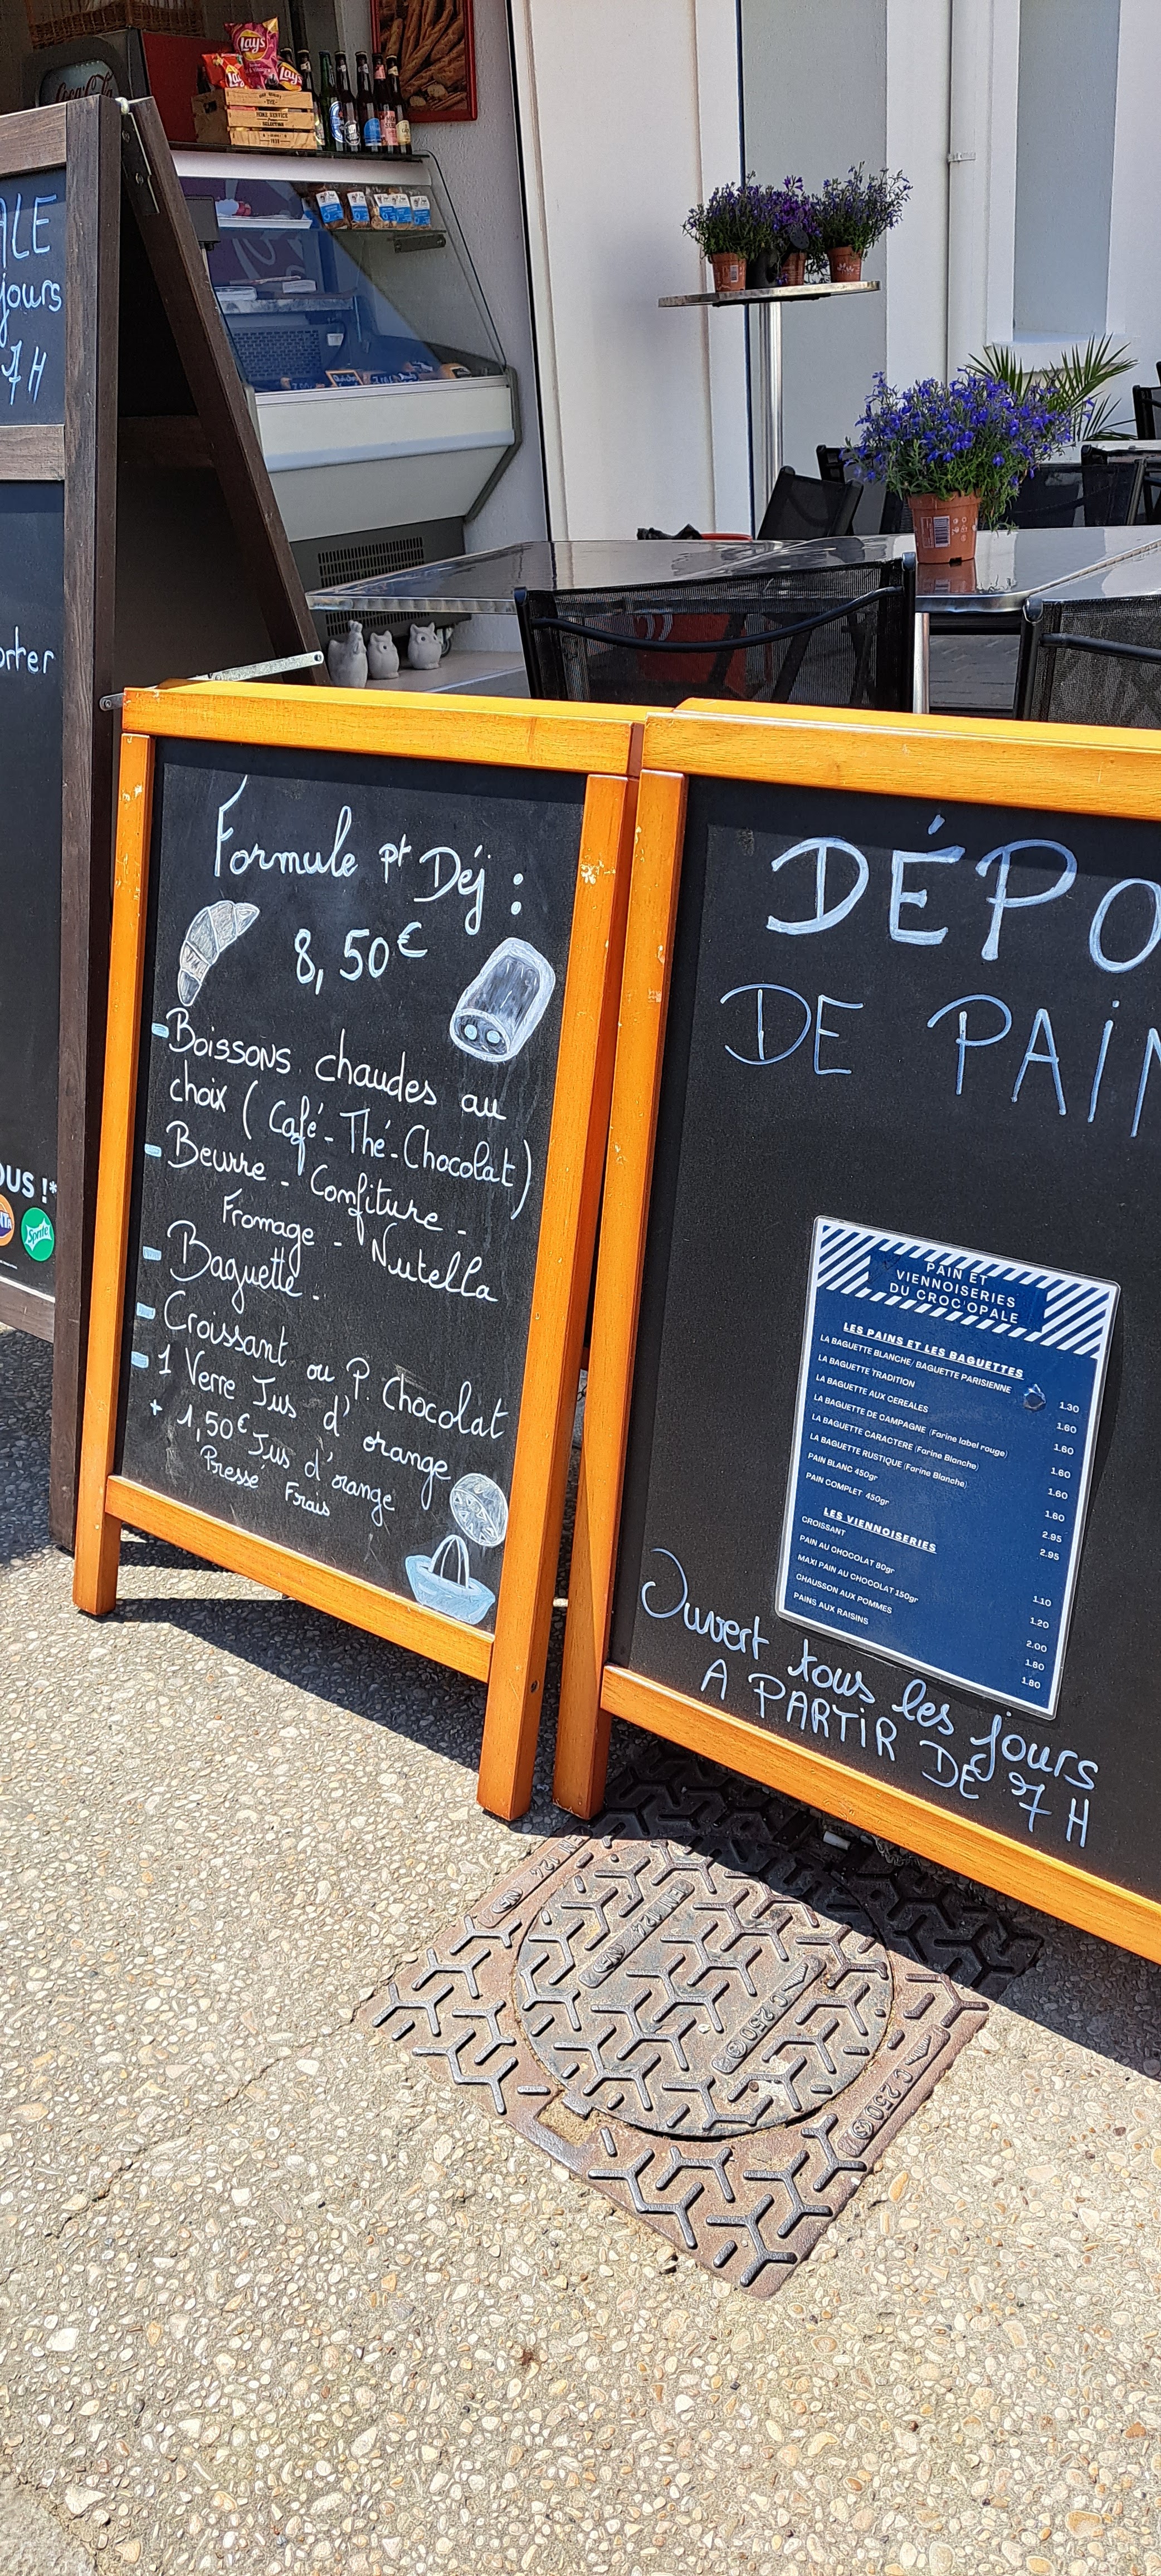 Coca-Cola
Lay's
Lay's
Lay's
ALE
jours
7 H
orter
OUS !*
Sprite
Formule pt Déj :
8,50€
- Boissons chaudes au
choix ( Café - Thé - Chocolat )
- Beurre - Confiture -
Fromage - Nutella
- Baguette.
- Croissant ou P. Chocolat
- 1 Verre Jus d' orange
+ 1,50€ Jus d'orange
Pressé Frais
DÉPO
DE PAIN
PAIN ET
VIENNOISERIES
DU CROC'OPALE
LES PAINS ET LES BAGUETTES
LA BAGUETTE BLANCHE/ BAGUETTE PARISIENNE 1.30
LA BAGUETTE TRADITION 1.60
LA BAGUETTE AUX CEREALES 1.60
LA BAGUETTE DE CAMPAGNE (Farine label rouge) 1.60
LA BAGUETTE CARACTERE (Farine Blanche) 1.60
LA BAGUETTE RUSTIQUE (Farine Blanche) 1.60
PAIN BLANC 450gr 2.95
PAIN COMPLET 450gr 2.95
LES VIENNOISERIES
CROISSANT 1.10
PAIN AU CHOCOLAT 80gr 1.20
MAXI PAIN AU CHOCOLAT 150gr 2.00
CHAUSSON AUX POMMES 1.80
PAINS AUX RAISINS 1.80
Ouvert tous les jours
A PARTIR DE 7 H
EN 124
EN 124
C 250
C 250